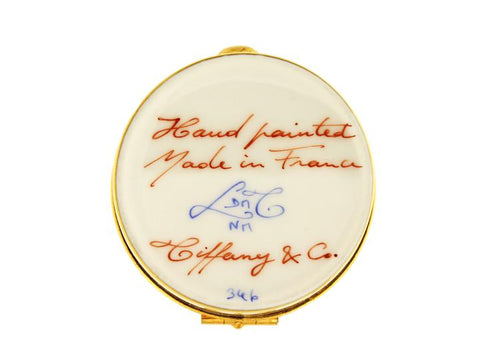 Hand painted
Made in France
L DM C
NM
Tiffany & Co.
346